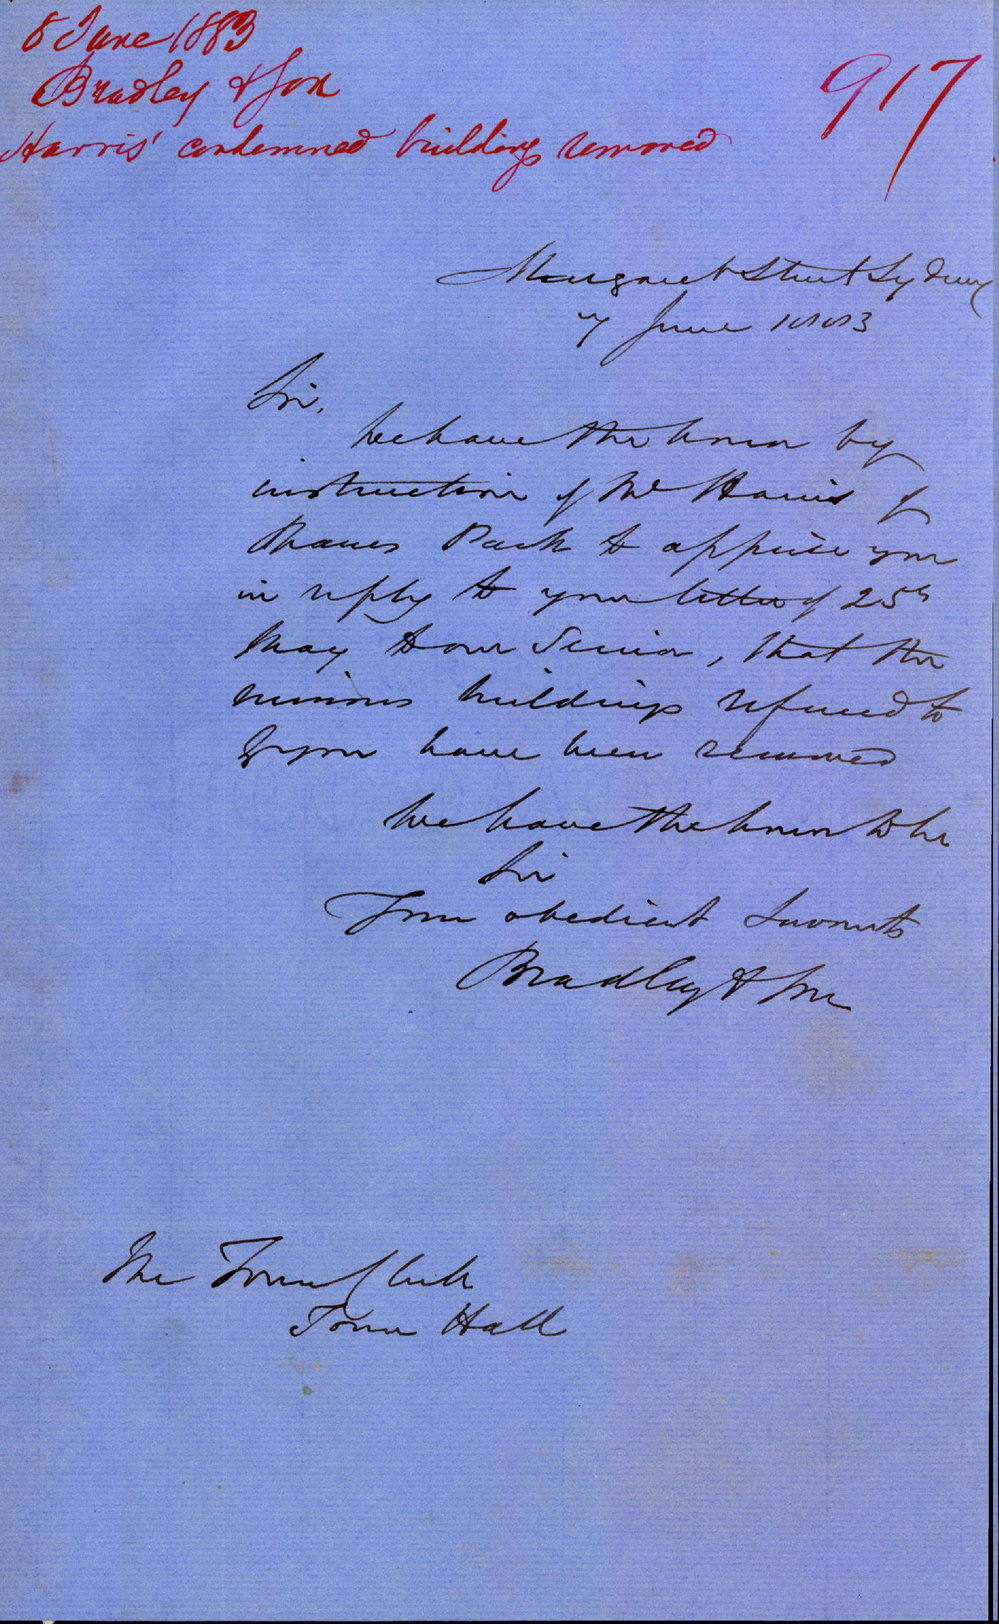 8 June 1883
Bradley & Son
917
Harris' condemned buildings removed
Margaret Street Sydney
7 June 1883
Sir,
We have the honor by
instruction of Mr Harris of
Park to apprise you
in reply to your letter of 25th
May to our Senior, that the
ruinous buildings referred to
by you have been removed
We have the honor to be
Sir
Your obedient Servants
Bradley & Son
The Town Clerk
Town Hall